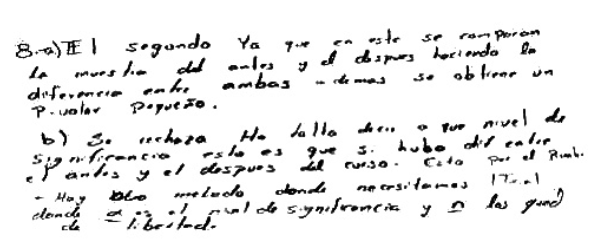 8.-a) El segundo ya que en este se comparan
la muestra del antes y el despues haciendo la
diferencia entre ambas además se obtiene un
P-valor pequeño.
b) Se rechaza Ho a que nivel de
significancia esto es que si hubo dif entre
el antes y el despues del curso. Esto por el
- Hay otro metodo donde necesitamos
donde α es el nivel de significancia y n los grad
de libertad.